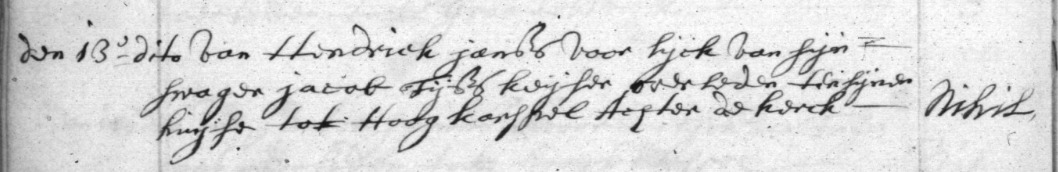 den 13d dito van Hendrick janss voor lijck van sijn =
swager jacob Tijss keijser overleden tensijnen
huijse tot Hoog karspel Achter de kerck — Nihil,